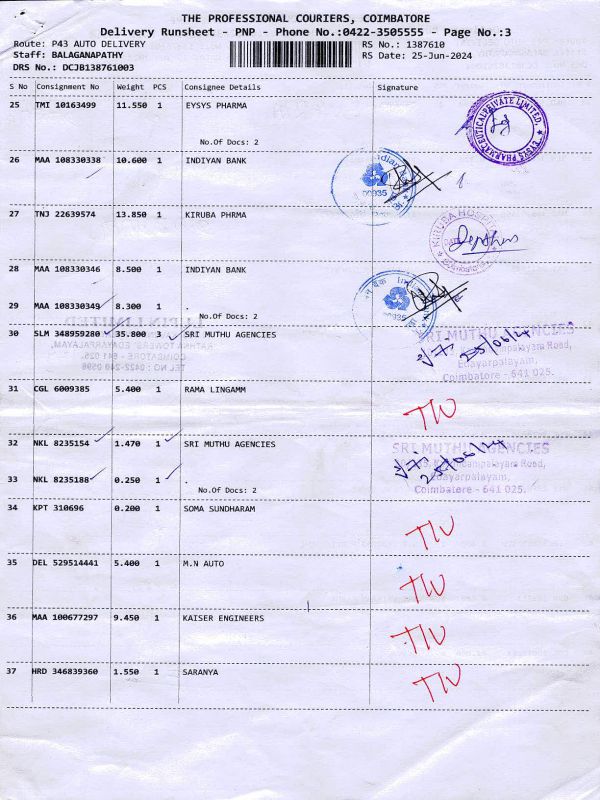 THE PROFESSIONAL COURIERS, COIMBATORE
Delivery Runsheet - PNP - Phone No.:0422-3505555 - Page No.:3
Route: P43 AUTO DELIVERY
RS No.: 1387610
Staff: BALAGANAPATHY
RS Date: 25-Jun-2024
DRS No.: DCJB138761003
S No Consignment No Weight PCS Consignee Details Signature
25 TMI 10163499 11.550 1 EYSYS PHARMA
EYSYS PHARMACEUTICAL PRIVATE LIMITED
No.Of Docs: 2
26 MAA 108330338 10.600 1 INDIYAN BANK
Indian
00935
27 TNJ 22639574 13.850 1 KIRUBA PHRMA
KIRUBA HOSPI
28 MAA 108330346 8.500 1 INDIYAN BANK
29 MAA 108330349 8.300 1
No.Of Docs: 2
30 SLM 348959280 35.800 3 SRI MUTHU AGENCIES
SRI MUTHU AGENCIES
25/06/24
Edayarpalayam,
Coimbatore - 641 025.
31 CGL 6009385 5.400 1 RAMA LINGAMM
32 NKL 8235154 1.470 1 SRI MUTHU AGENCIES
SRI MUTHU AGENCIES
25/06/24
33 NKL 8235188 0.250 1 .
Edayarpalayam,
Coimbatore - 641 025.
No.Of Docs: 2
34 KPT 310696 0.200 1 SOMA SUNDHARAM
35 DEL 529514441 5.400 1 M.N AUTO
36 MAA 100677297 9.450 1 KAISER ENGINEERS
37 HRD 346839360 1.550 1 SARANYA